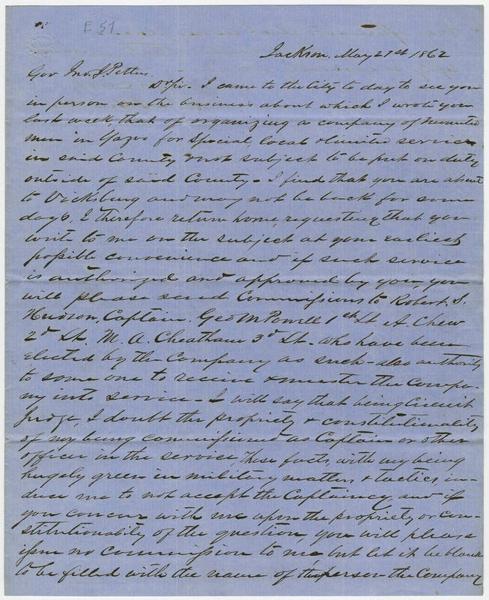 E 57
Jackson, May 27th 1862
Gov Jno. J Pettus
D Sir. I came to the City to day to see you
in person on the business about which I wrote you
last week that of organizing a company of mounted
men in Yazoo for Special local & limited service
in said County & not subject to be put on duty
outside of said County - I find that you are about
to Vicksburg and may not be back for some
days, I therefore return home, requesting that you
write to me on the subject at your earliest
possible convenience and if such service
is authorized and approved by you you
will please send Commissions to Robert. S.
Hudson, Captain. Geo M Powell 1st Lt A. Chew
2d Lt. M. A. Cheatham 3d Lt. who have been
elected by the Company as such - also authority
to some one to receive & muster the Compa-
ny into service - I will say that being Circuit
Judge, I doubt the propriety & constitutionality
of my being commissioned as Captain or other
officer in the service, these facts, with my being
hugely green in military matters & tactics, in-
duce me to not accept the Captaincy and if
you concur with me upon the propriety or con-
stitutionality of the question, you will please
issue no commission to me but let it be blank
to be filled with the name of the person the Company